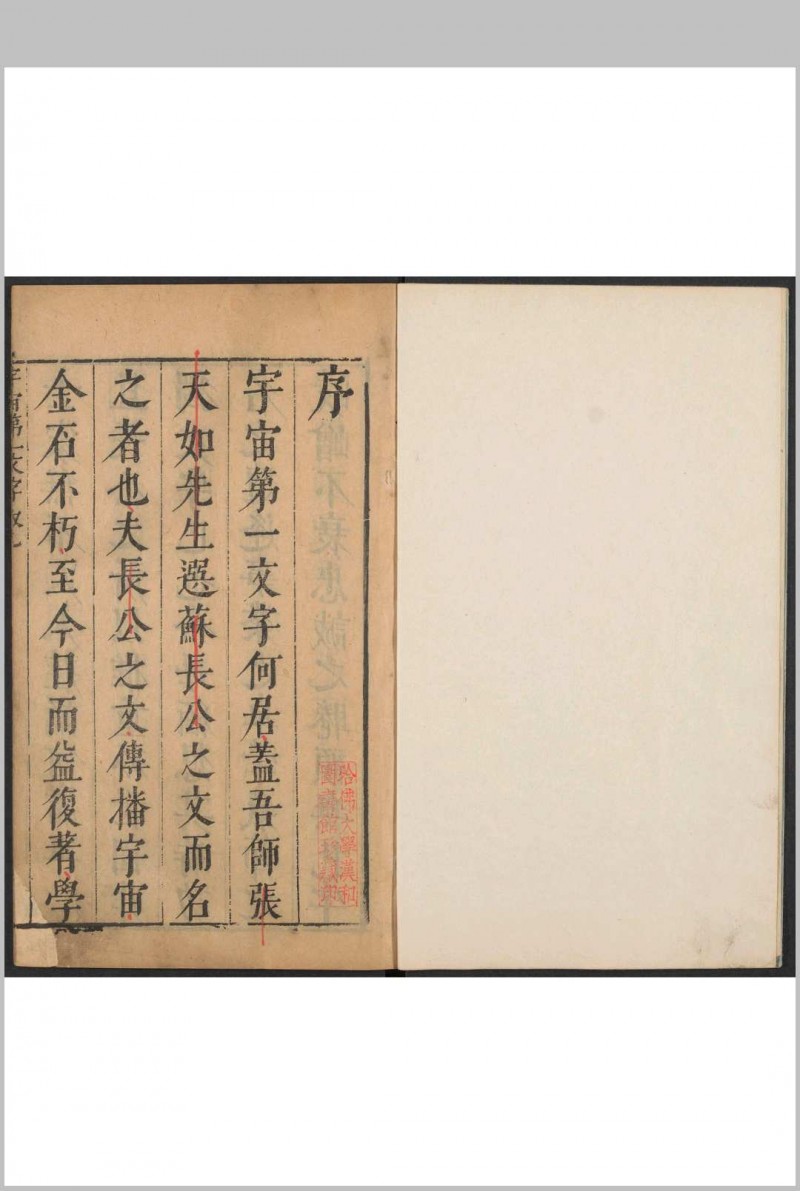 序
宇宙第一文字何居蓋吾師張
天如先生選蘇長公之文而名
之者也夫長公之文傳播宇宙
金石不朽至今日而益復著學
宇宙第一文字
哈佛大學漢和
圖書館珍藏印